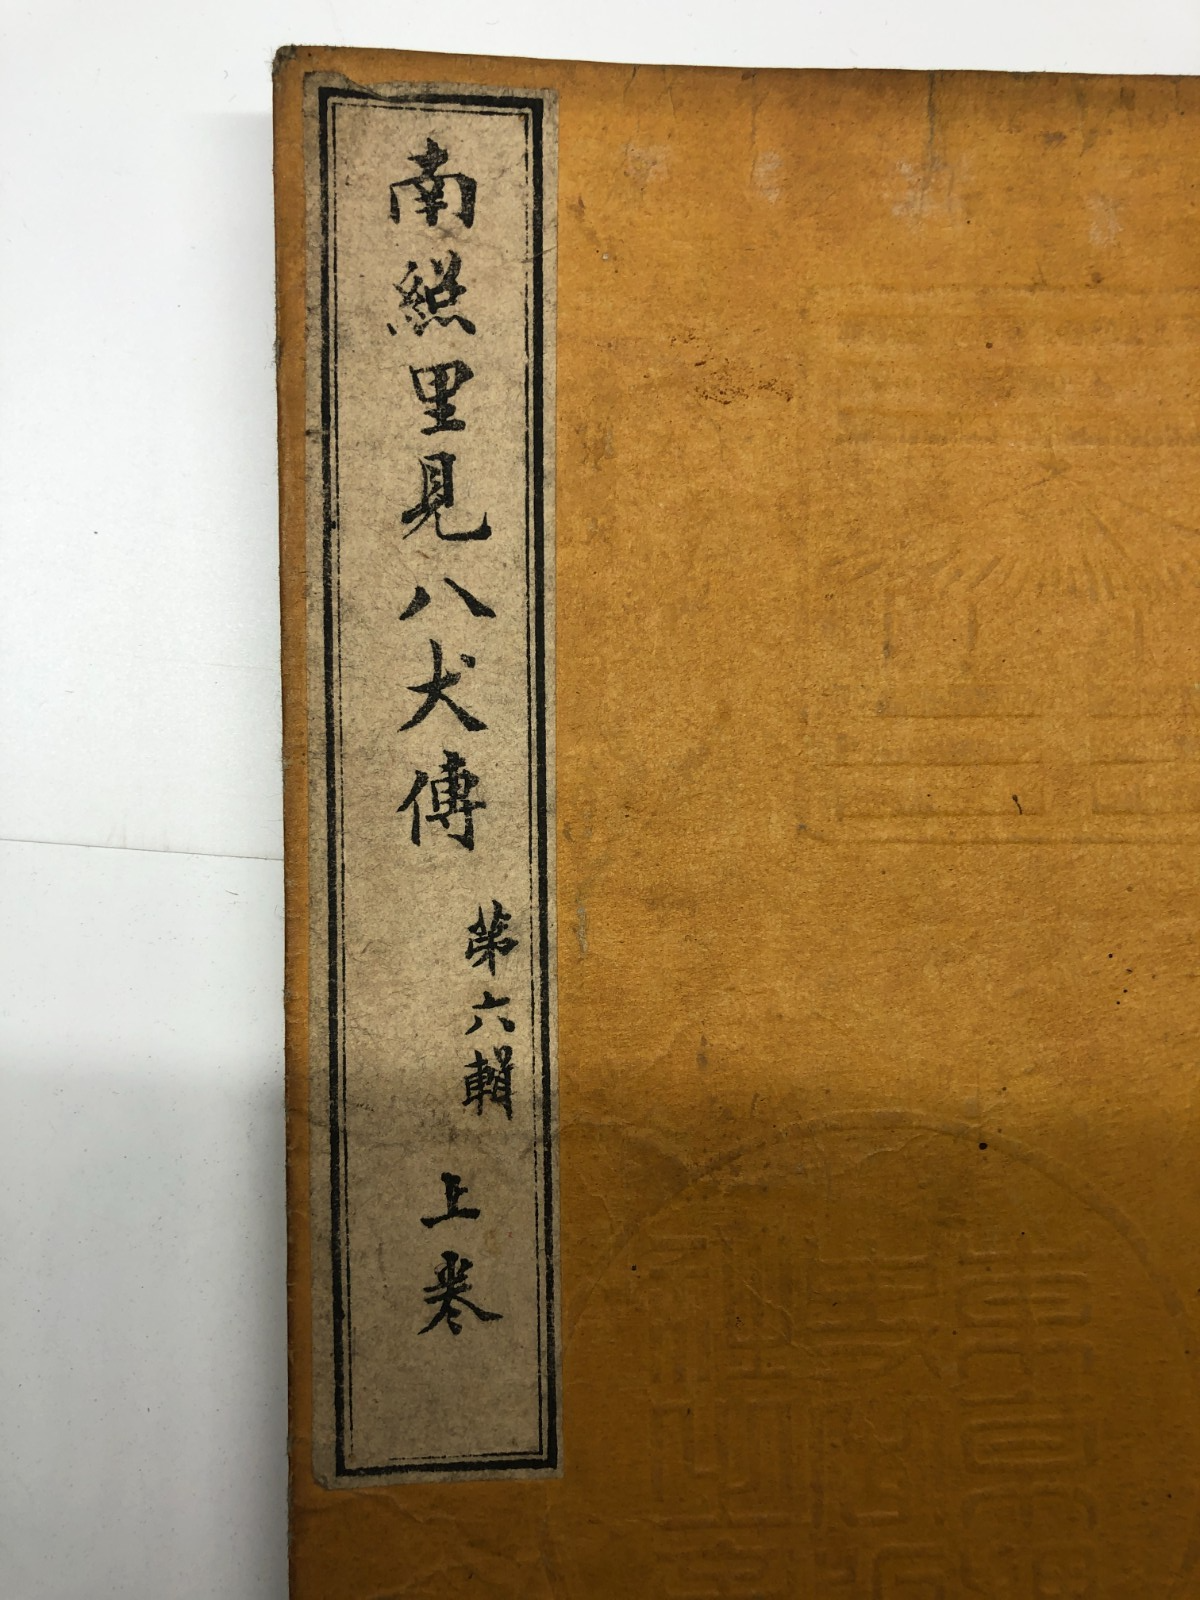 南緫里見八犬傳
第六輯
上巻